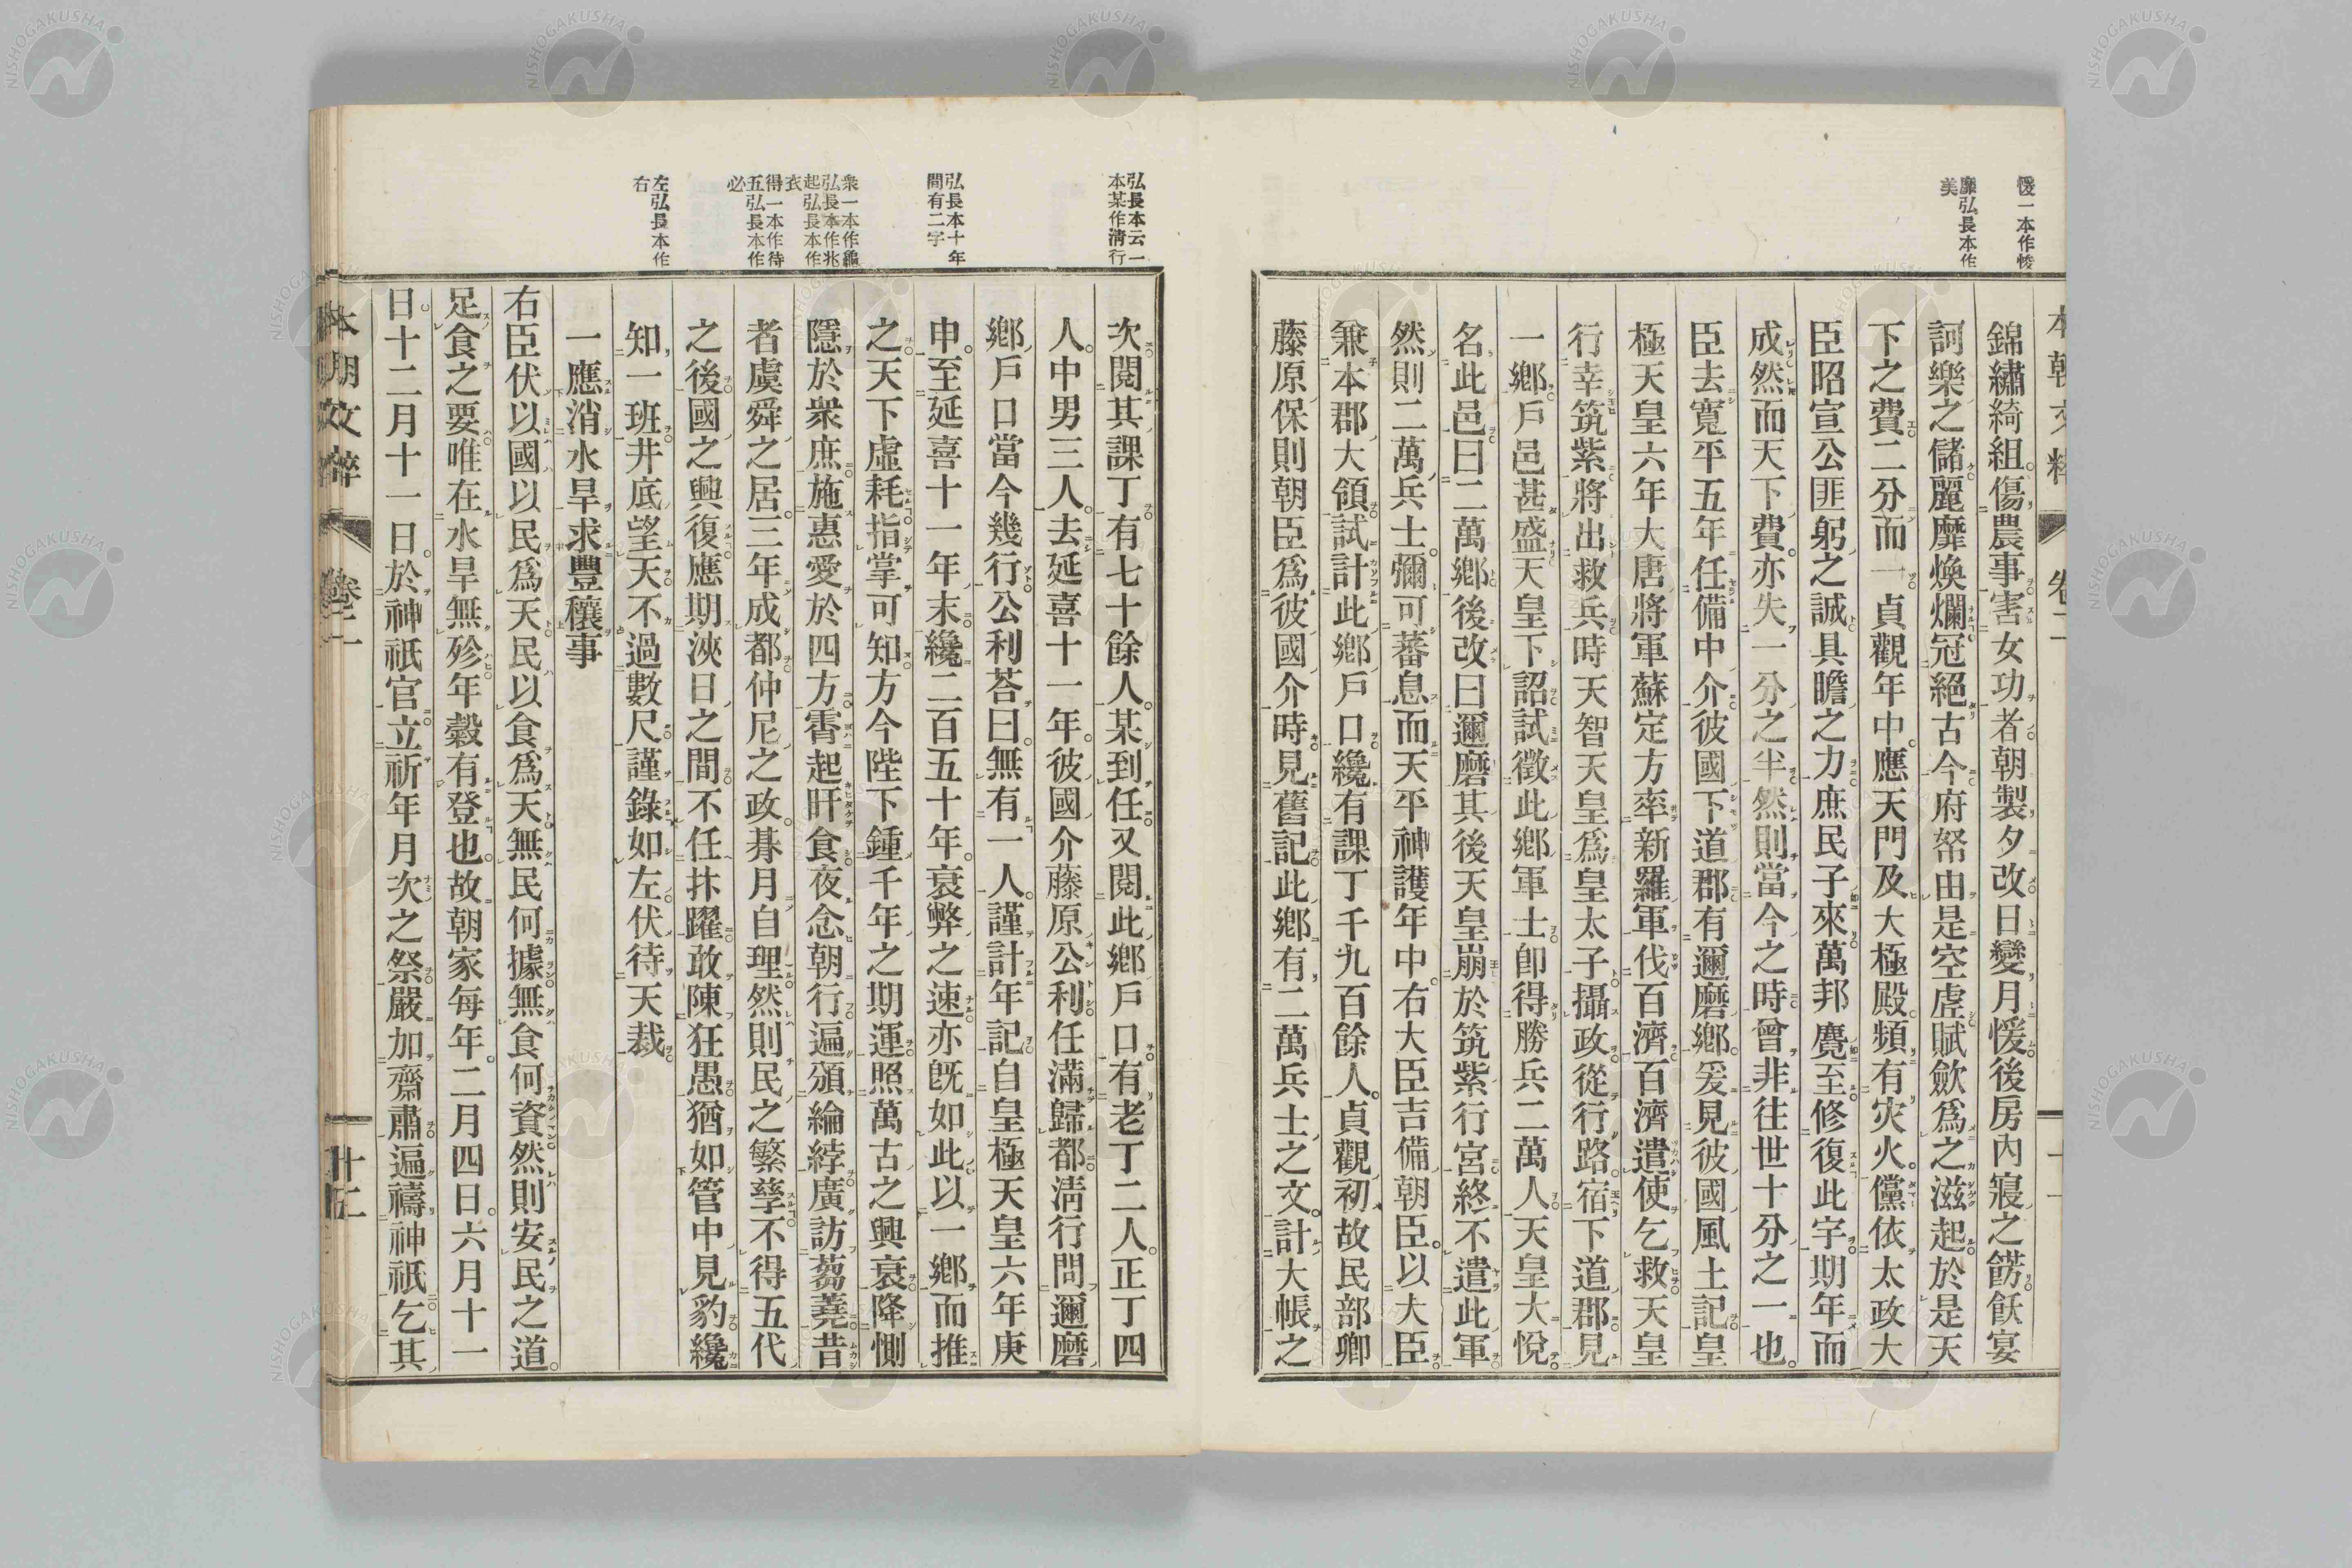 愋一本作悛
靡弘長本作
美
本朝文粹 卷二
錦繡綺組傷農事害女功者朝製夕改日變月愋後房內寢之饍飫宴
訶樂之儲麗靡煥爛冠絕古今府帑由是空虛賦斂爲之滋起於是天
下之費二分而一貞觀年中應天門及大極殿頻有灾火儻依太政大
臣昭宣公匪躬之誠具瞻之力庶民子來萬邦麏至修復此宇期年而
成然而天下費亦失一分之半然則當今之時曾非往世十分之一也
臣去寬平五年任備中介彼國下道郡有邇磨鄉爰見彼國風土記皇
極天皇六年大唐將軍蘇定方率新羅軍伐百濟百濟遣使乞救天皇
行幸筑紫將出救兵時天智天皇爲皇太子攝政從行路宿下道郡見
一鄉戶邑甚盛天皇下詔試徵此鄉軍士卽得勝兵二萬人天皇大悅
名此邑曰二萬鄉後改曰邇磨其後天皇崩於筑紫行宮終不遣此軍
然則二萬兵士彌可蕃息而天平神護年中右大臣吉備朝臣以大臣
兼本郡大領試計此鄉戶口纔有課丁千九百餘人貞觀初故民部卿
藤原保則朝臣爲彼國介時見舊記此鄉有二萬兵士之文計大帳之
弘長本云一
本某作淸行
弘長本十年
間有二字
衆一本作龜
弘長本作兆
起弘長本作
衣
得一本作待
五弘長本作
必
左弘長本作
右
次閱其課丁有七十餘人某到任又閱此鄉戶口有老丁二人正丁四
人中男三人去延喜十一年彼國介藤原公利任滿歸都淸行問邇磨
鄉戶口當今幾行公利荅曰無有一人謹計年記自皇極天皇六年庚
申至延喜十一年末纔二百五十年衰弊之速亦旣如此以一鄉而推
之天下虛耗指掌可知方今陛下鍾千年之期運照萬古之興衰降惻
隱於衆庶施惠愛於四方霄起旰食夜念朝行遍頒綸綍廣訪芻蕘昔
者虞舜之居三年成都仲尼之政朞月自理然則民之繁孳不得五代
之後國之興復應期浹日之間不任抃躍敢陳狂愚猶如管中見豹纔
知一班井底望天不過數尺謹錄如左伏待天裁
一應消水旱求豐穰事
右臣伏以國以民爲天民以食爲天無民何據無食何資然則安民之道
足食之要唯在水旱無殄年穀有登也故朝家每年二月四日六月十一
日十二月十一日於神祇官立祈年月次之祭嚴加齋肅遍禱神祇乞其
本朝文粹 卷二 十二